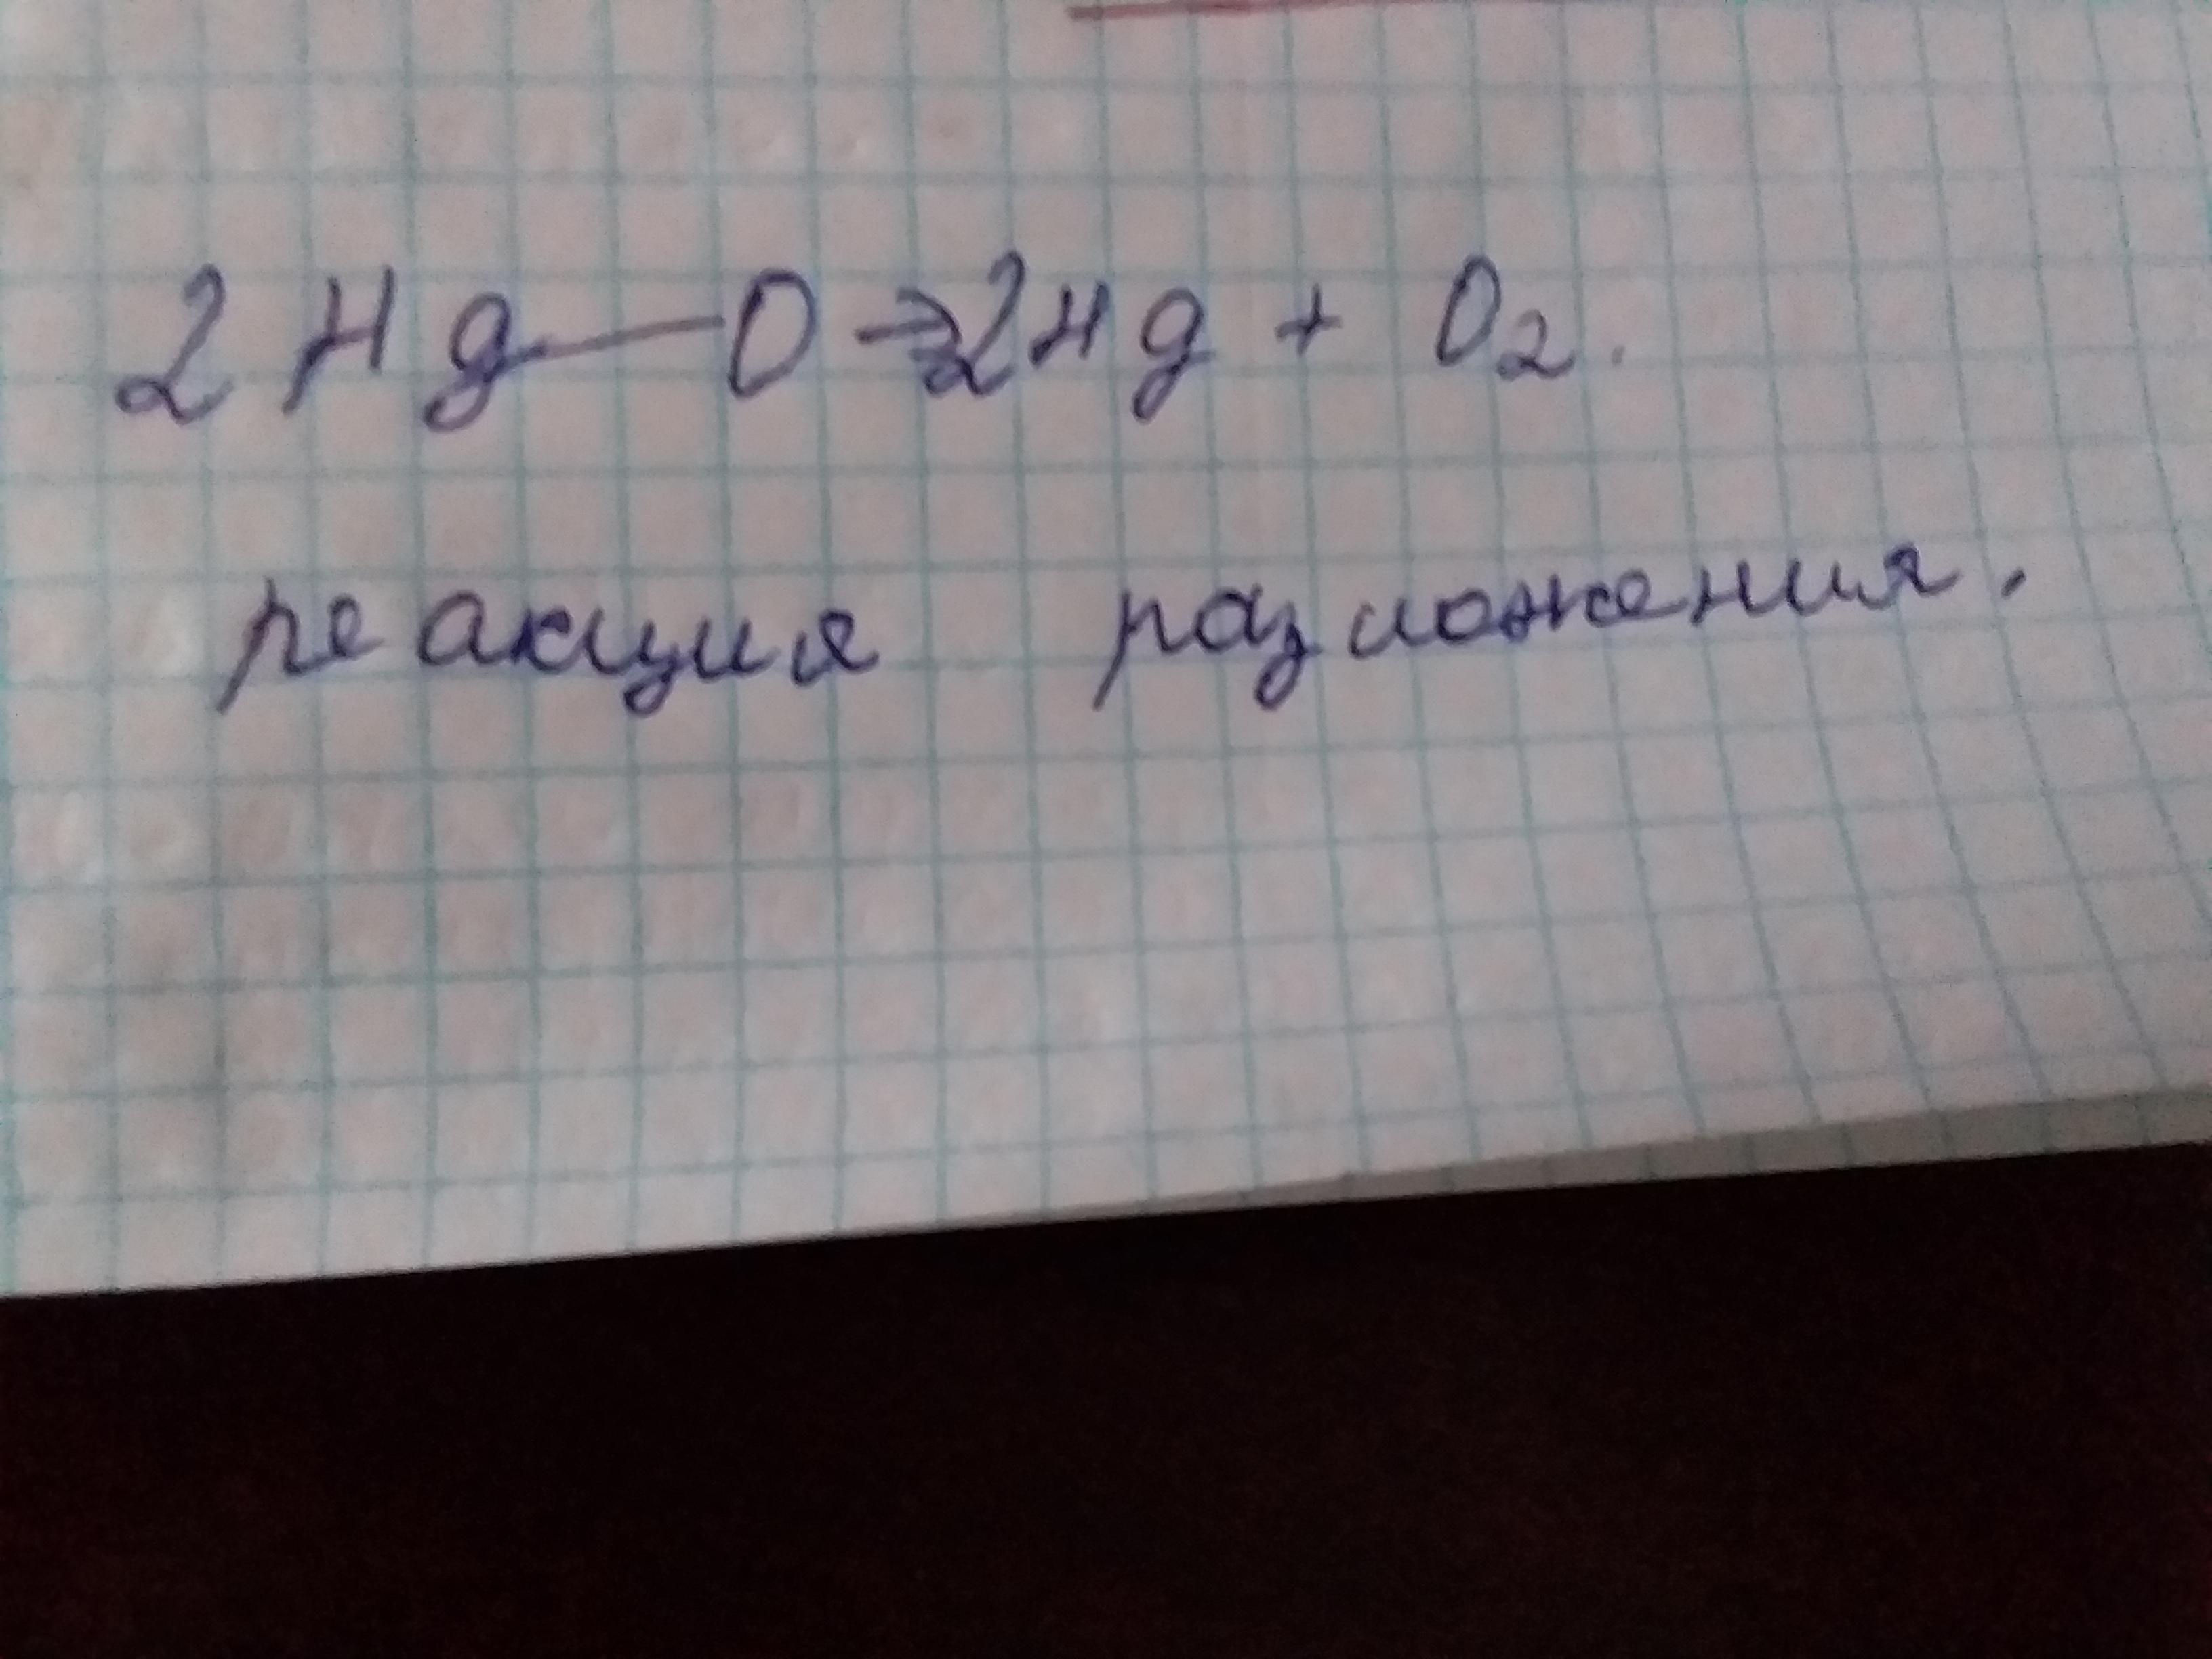 2Hg—O→2Hg + O₂.
реакция разложения.